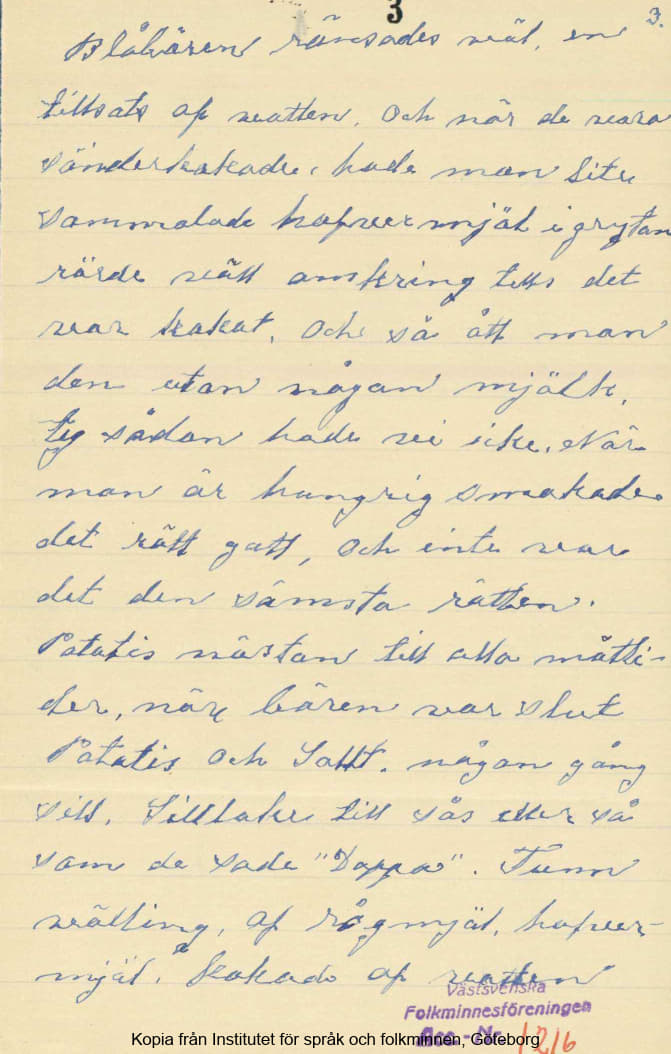 3
3.
Blåbären ränsades väl, en
tillsats af vatten. Och när de voro
sönderkokade, hade man lite
sammalade hafveermjöl i grytan
rörde vätt omkring tills det
var kokat. Och så ått man
den utan någon mjölk,
ty sådan hade vi icke. När
man är hungrig smakade
det rätt gatt, och inte var
det den sämsta rätten.
Potatis nästan till alla målti-
der, när bären var slut
Potatis och Sallt. någon gång
sill. Silllake till sås eller så
som de sade "Doppa". Tunn
välling, af rågmjöl, hafver-
mjöl. Kokade af vatten
Västsvenska
Folkminnesföreningen
Acc. - Nr. 1216
Kopia från Institutet för språk och folkminnen, Göteborg